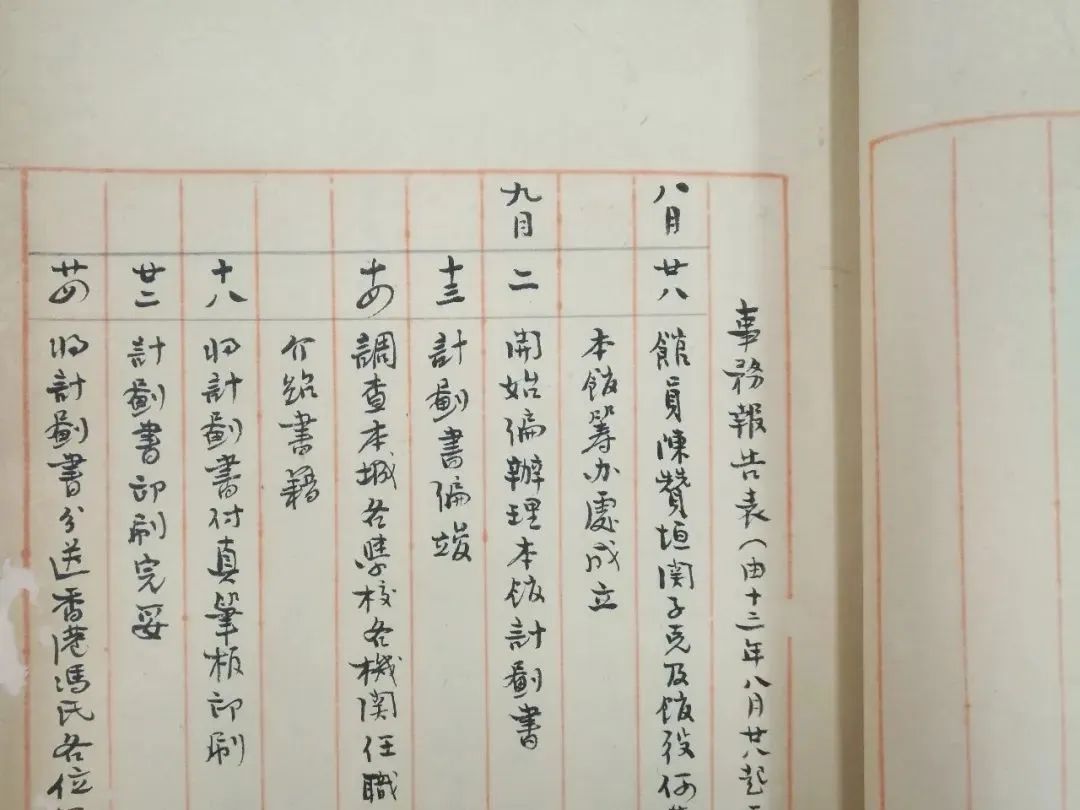 事務報告表（由十三年八月廿八起
八月 廿八 館員陳贊垣関子克及館役何
本館筹办處成立
九月 二 開始偏辦理本館計劃書
十三 計劃書偏竣
十四 調查本城各學校各機関任職
介紹書籍
十八 将計劃書付真筆板印刷
廿二 計劃書印刷完妥
廿四 将計劃書分送香港馮氏各位